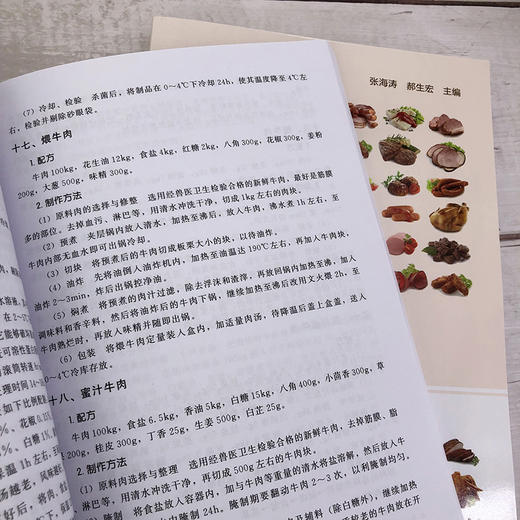 张海涛 郝生宏 主编
(7) 冷却、检验 杀菌后，将制品在 0～4℃下冷却 24h，使其温度降至 4℃左
右，检验并剔除砂眼袋。
十七、煨牛肉
1. 配方
牛肉 100kg，花生油 12kg，食盐 4kg，红糖 2kg，八角 300g，花椒 300g，姜粉
200g，大葱 500g，味精 300g。
2. 制作方法
(1) 原料肉的选择与修整 选用经兽医卫生检验合格的新鲜牛肉，最好是筋膜
多的部位。去掉血污、淋巴等，用清水冲洗干净，切成 1kg 左右的肉块。
(2) 预煮 夹层锅内放入清水，加热至沸后，放入牛肉，沸水煮 1h 左右，至
牛肉内部无血水即可出锅冷却。
(3) 切块 将预煮后的牛肉切成板栗大小的块，以待油炸。
(4) 油炸 先将油倒入油炸机内，加热至油温达 190℃左右，再加入牛肉块，
油炸 2～3min，炸后出锅控净油。
(5) 焖煮 将预煮的肉汁过滤，除去浮沫和渣滓，再放回锅内加热至沸，加入
调味料和香辛料，然后将油炸后的牛肉下锅，继续加热至沸后改用文火煨 2h，至
牛肉熟烂时，再放入味精并随即出锅。
(6) 包装 将煨牛肉定量装入盒内，加适量肉汤，待降温后盖上盒盖，送入
0～4℃冷库存放。
十八、蜜汁牛肉
1. 配方
牛肉 100kg，食盐 6.5kg，香油 5kg，白糖 15kg，八角 400g，小茴香 300g，草
200g，桂皮 300g，丁香 25g，生姜 500g，白芷 25g。
2. 制作方法
(1) 原料肉选择与整理 选用经兽医卫生检验合格的新鲜牛肉，去掉筋膜、脂
淋巴等，用清水冲洗干净，再切成 500g 左右的牛肉块。
(2) 腌制 将食盐放入容器内，加与牛肉等重量的清水将盐溶解，然后放入牛
中腌制 24h。腌制期要翻动牛肉 2～3 次，以利腌制均匀。
及辅料（除白糖外），继续加热